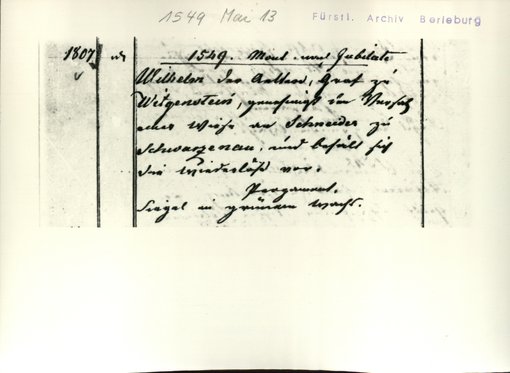 1549 Mai 13
Fürstl. Archiv Berleburg
1807
1549. Mont. nach Jubilate
Wilhelm der Aeltere, Graf zu
Witgenstein, genehmigt den Versatz
einer Wiese an Schneider zu
Schwarzenau, und behält sich
die Wiederlöse vor.
Pergament.
Siegel in grünem Wachs.